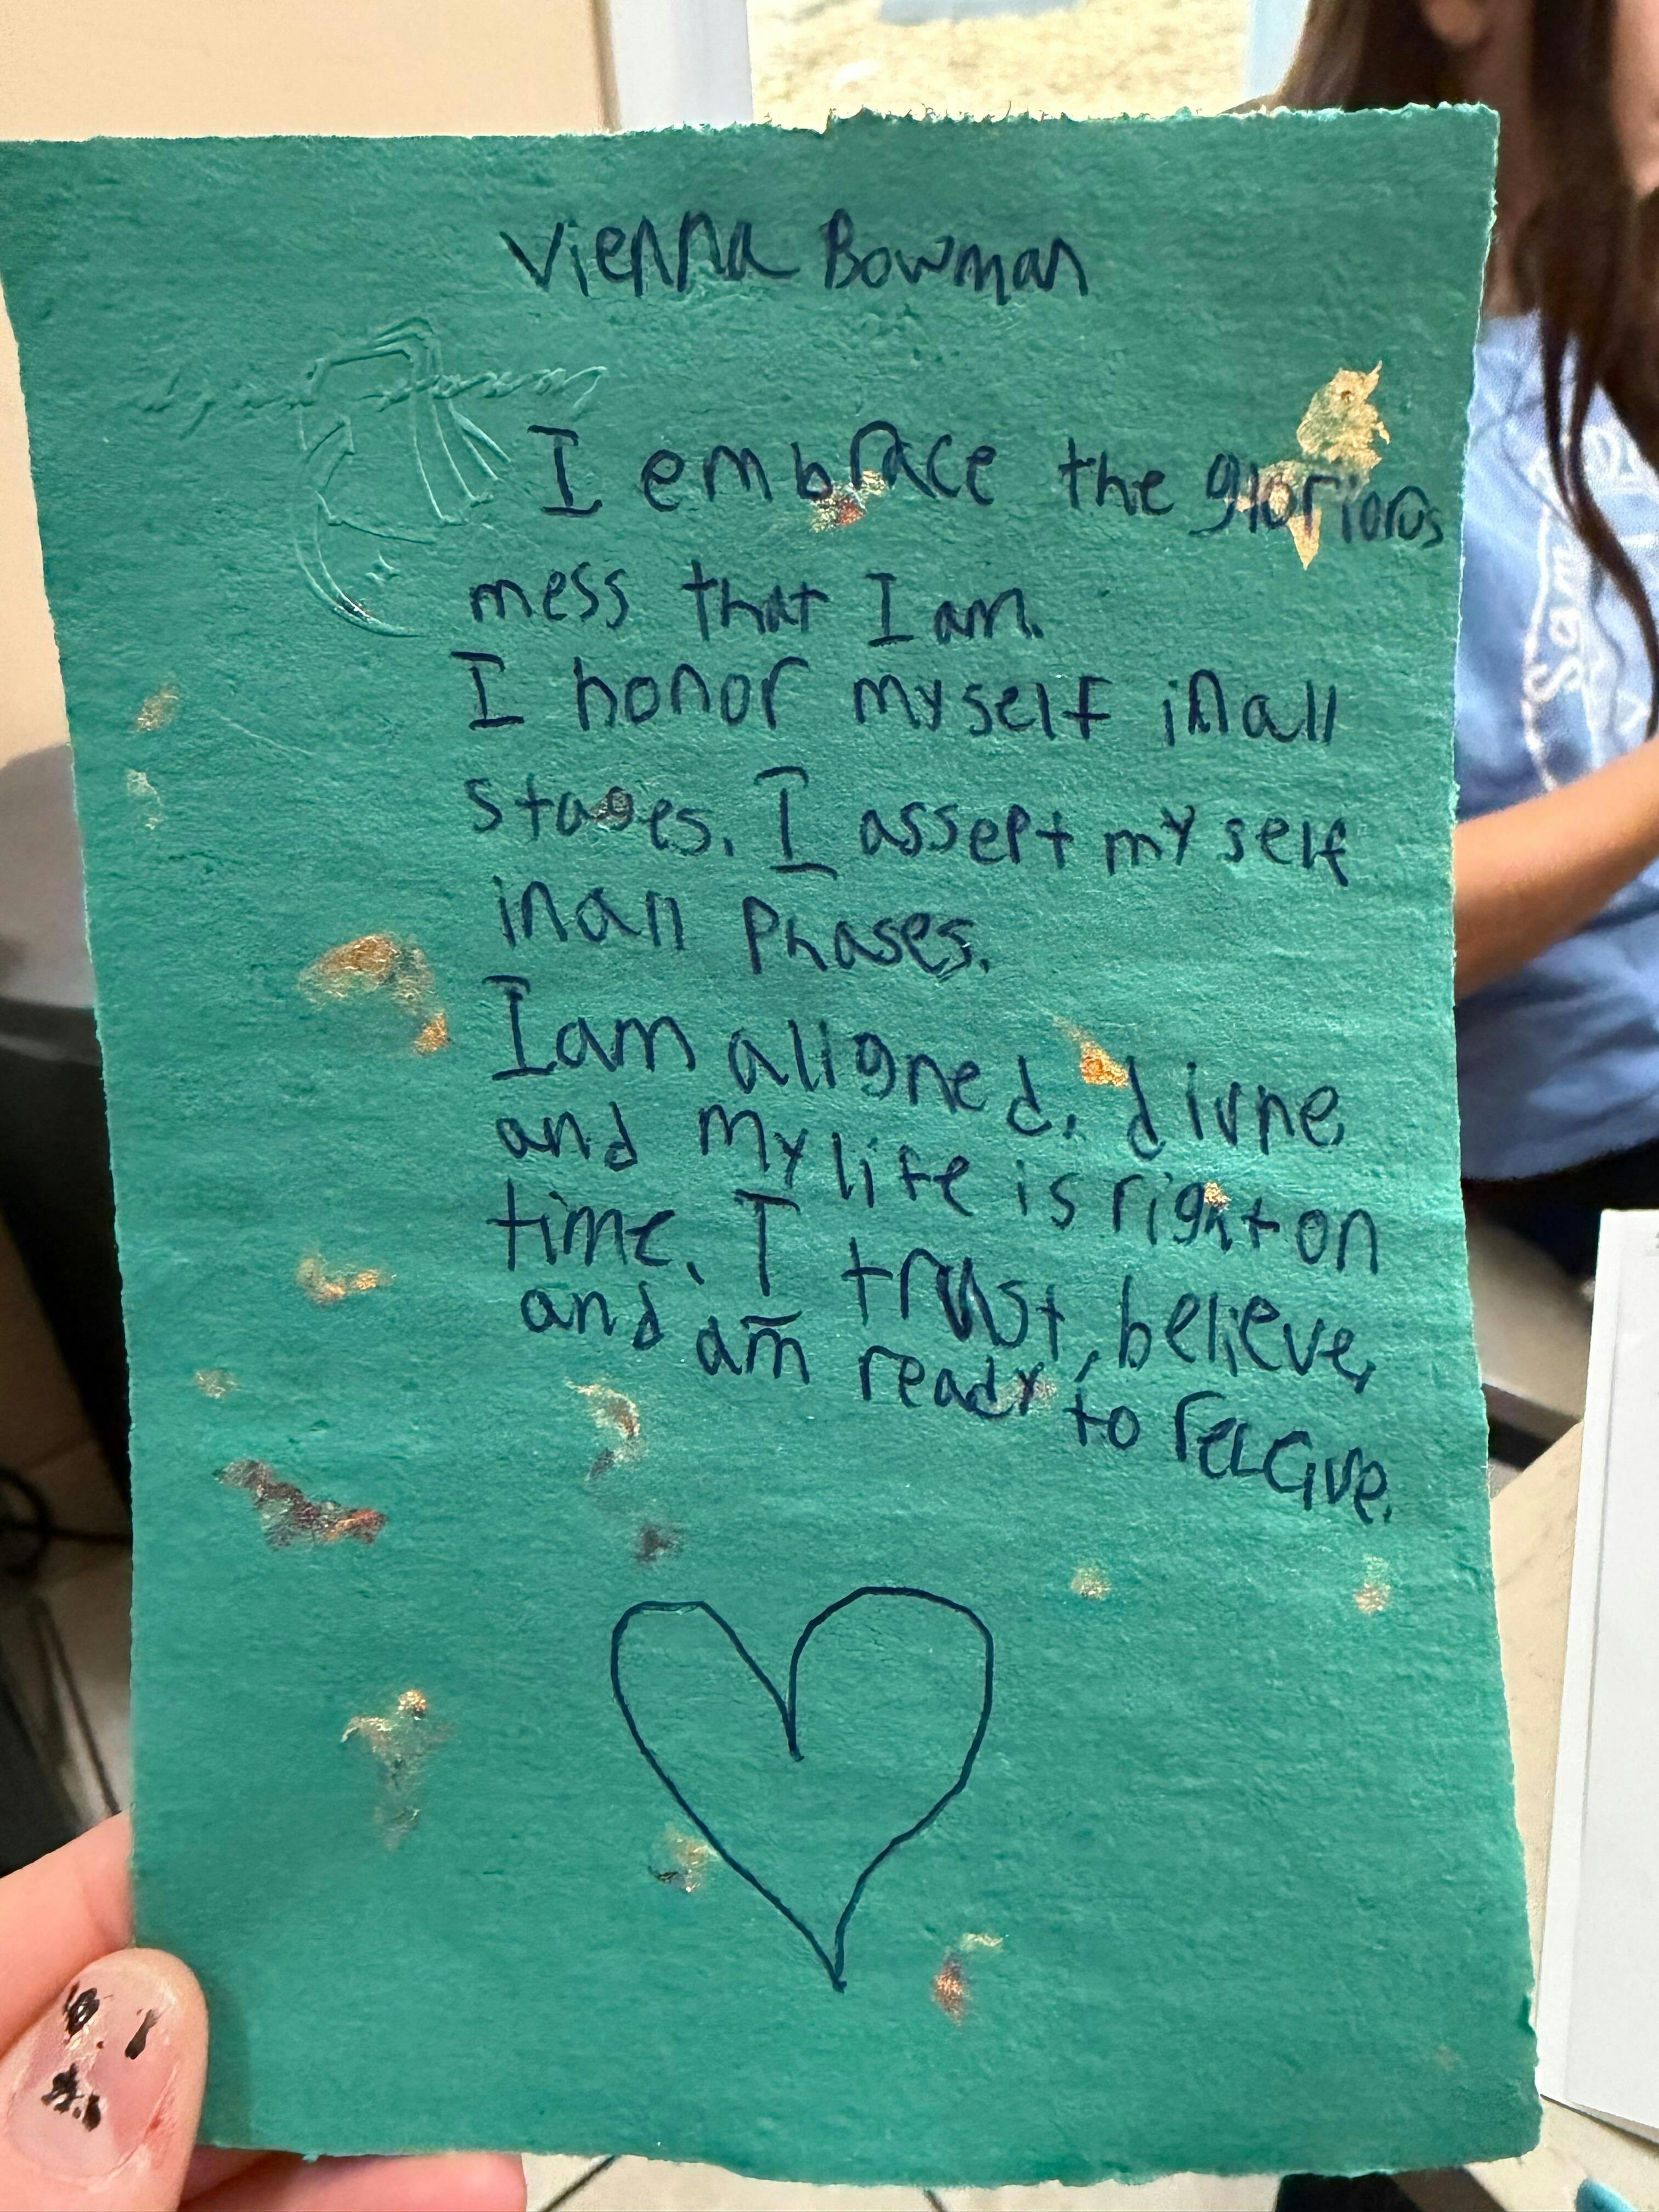 Vienna Bowman
I embrace the glorious
mess that I am.
I honor myself in all
stages. I assert my self
in all phases.
I am aligned, divine
and my life is right on
time. I trust, believe,
and am ready to receive.
Sam